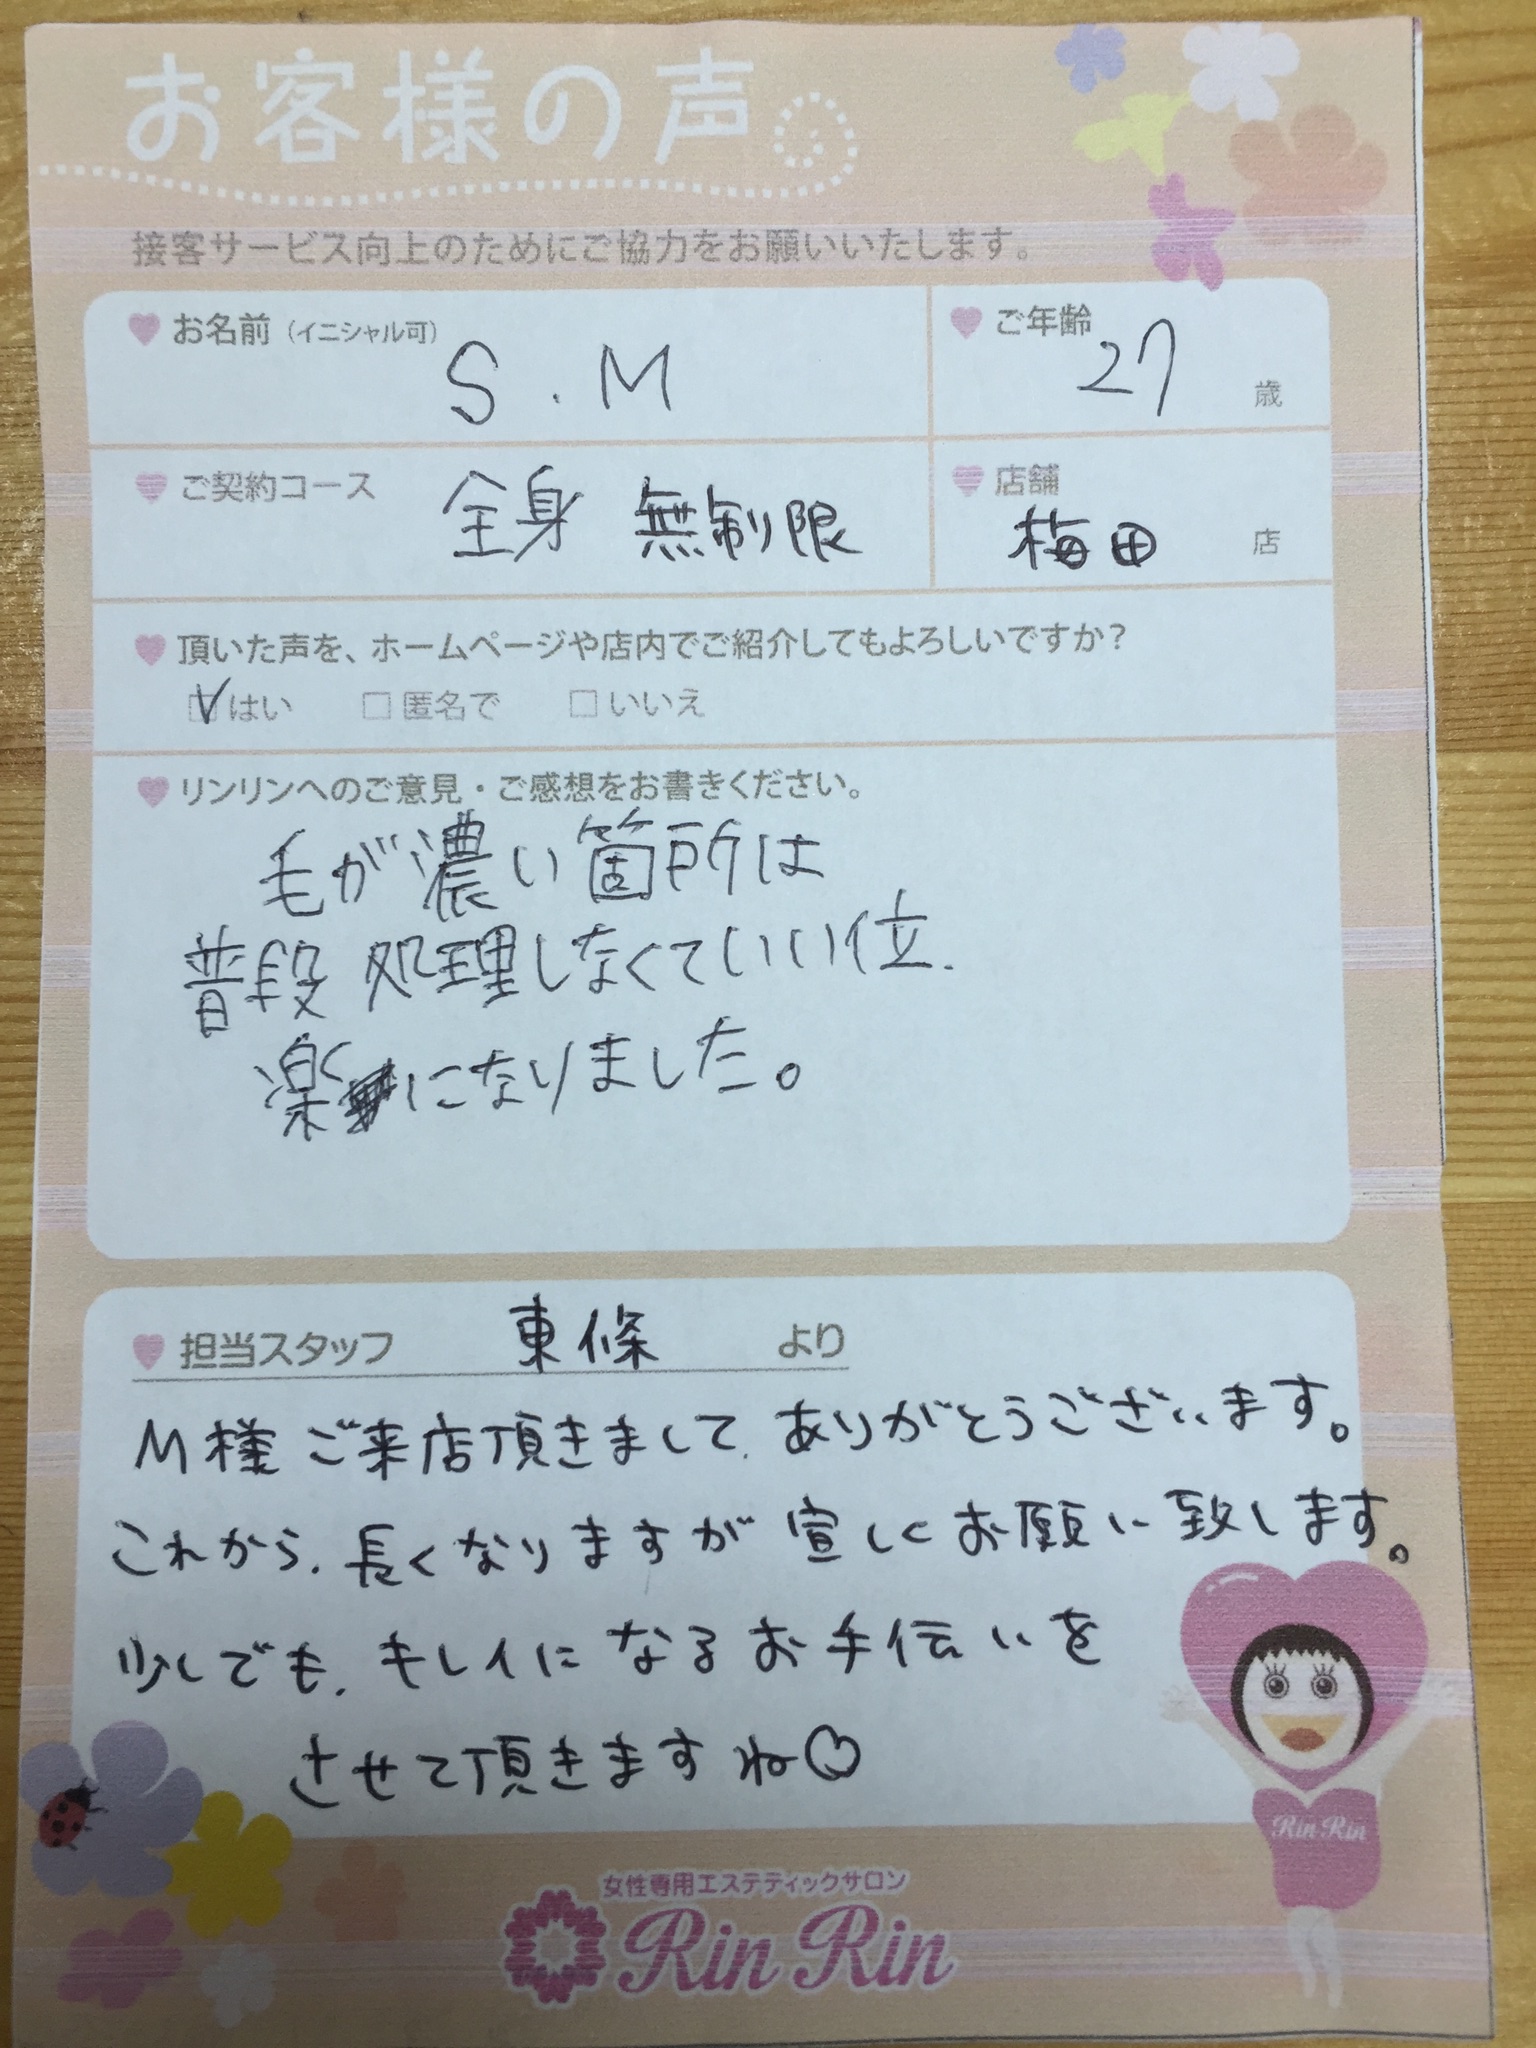 お客様の声
接客サービス向上のためにご協力をお願いいたします。
お名前（イニシャル可） S.M
ご年齢 27 歳
ご契約コース 全身 無制限
店舗 梅田 店
頂いた声を、ホームページや店内でご紹介してもよろしいですか？
はい 匿名で いいえ
リンリンへのご意見・ご感想をお書きください。
毛が濃い箇所は
普段 処理しなくていい位、
楽になりました。
担当スタッフ 東條 より
M様 ご来店頂きまして、ありがとうございます。
これから、長くなりますが 宜しくお願い致します。
少しでも、キレイになるお手伝いを
させて頂きますね♡
Rin Rin
女性専用エステティックサロン
Rin Rin